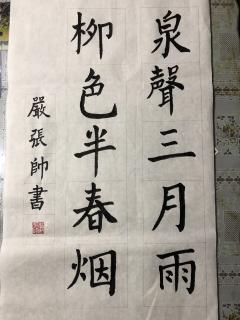 泉聲三月雨
柳色半春烟
嚴張帥書